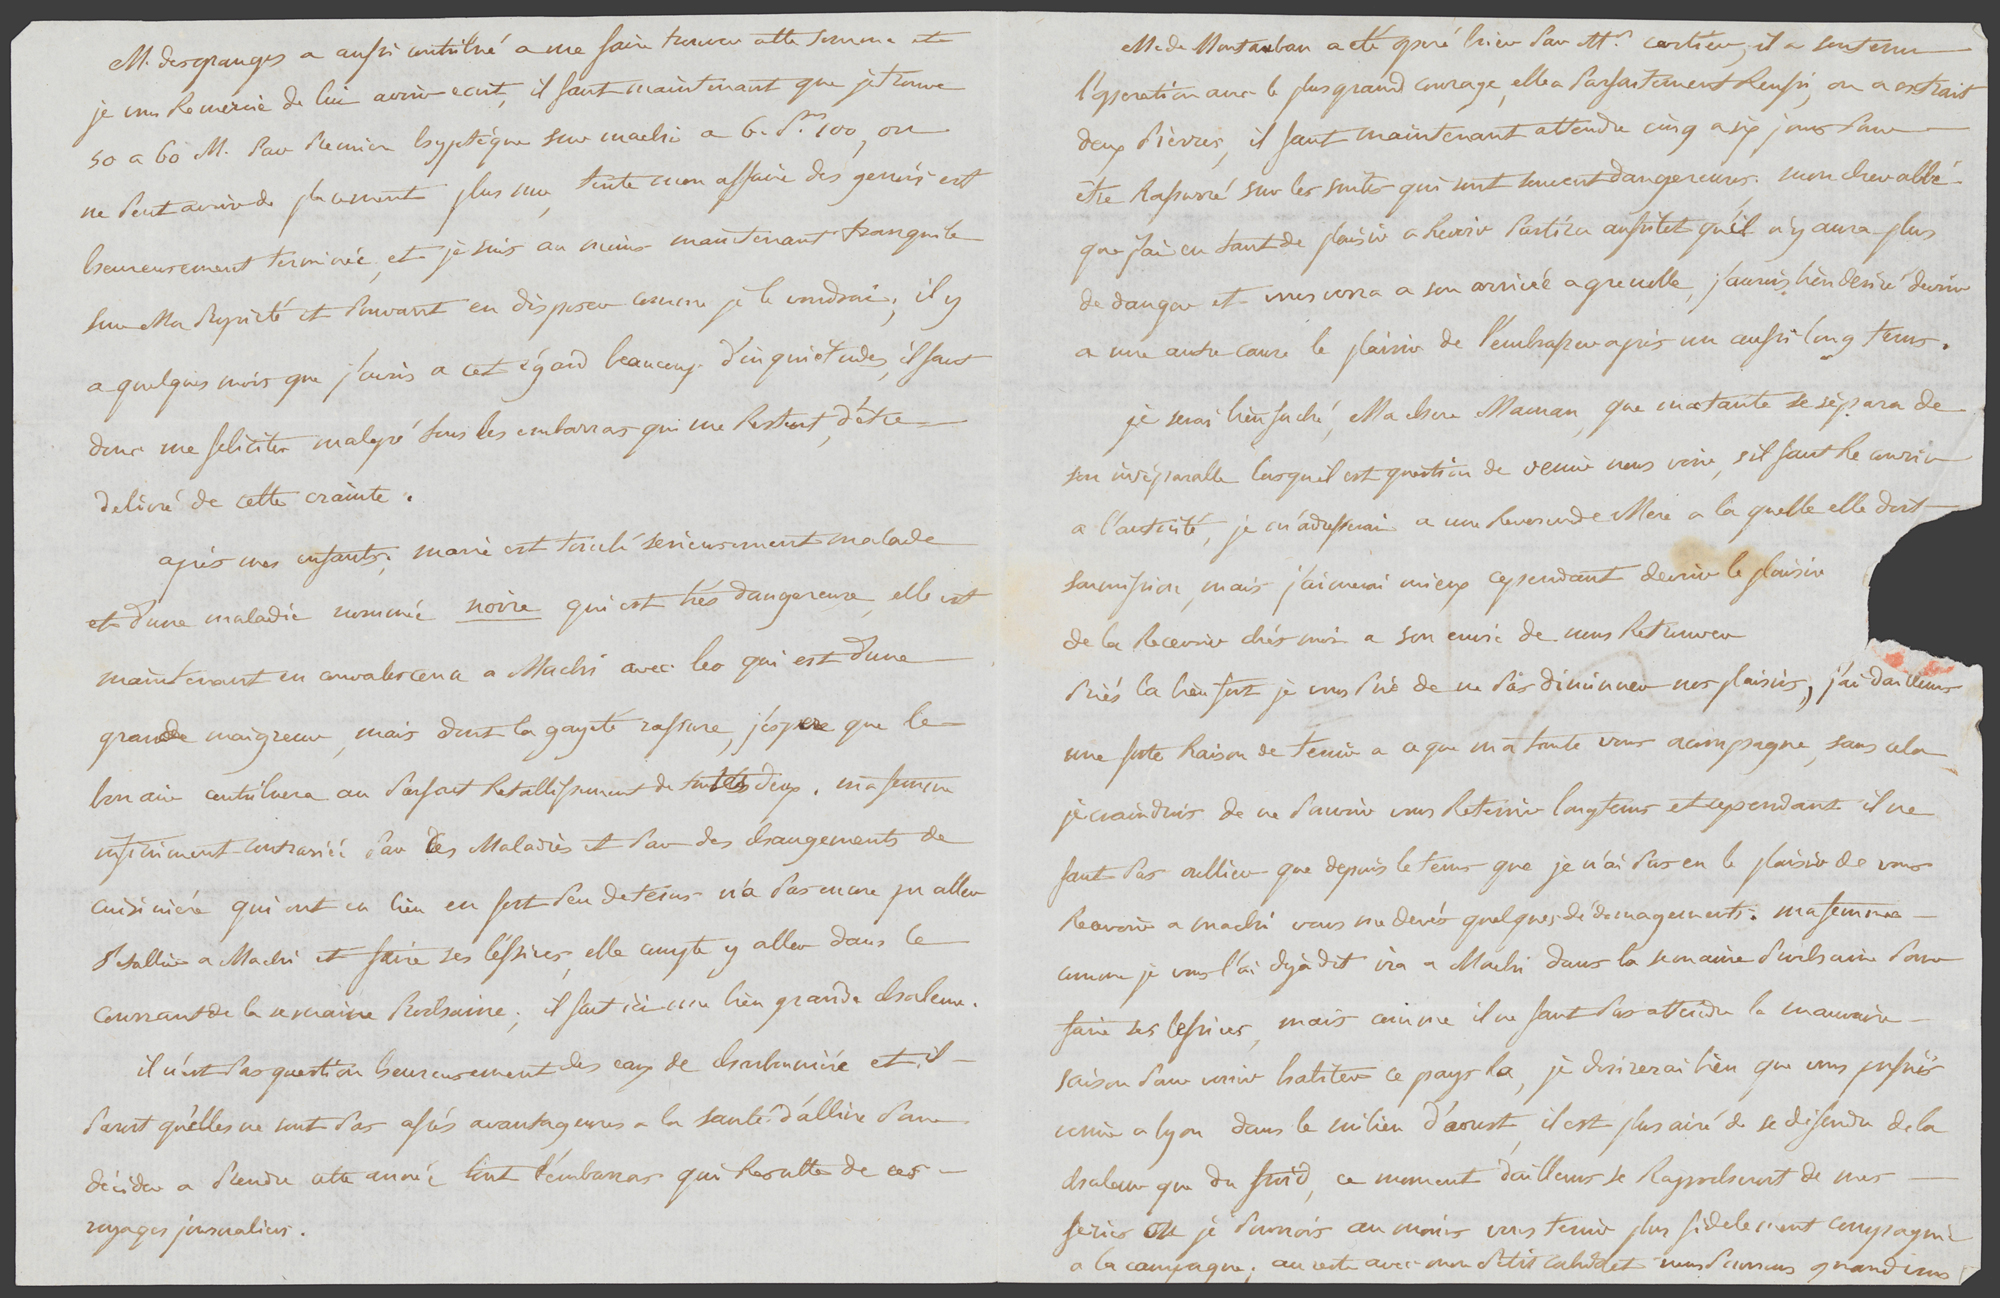 M. desgranges a aussi contribué a me faire trouver cette somme et
je vous Remercie de lui avoir ecrit, il faut maintenant que je trouve
50 a 60 M. par Premiere hypotèque sur machi a 6. P. 100, on
ne peut avoir de placement plus sur, toute mon affaire des est
heureusement terminée, et je suis au moins maintenant tranquile
sur Ma Propriété et Pouvant en disposer comme je le voudrai, il y
a quelques mois que j'avois a cet égard beaucoup d'inquiétudes, il faut
donc me feliciter malgré tous les embarras qui me Restent, d'être
delivré de cette crainte.
après mes enfants, marie est tombé serieusement malade
et d'une maladie nommée noire qui est très dangereuse, elle est
maintenant en convalescence a Machi avec leo qui est d'une
grande maigreur, mais dont la gayeté rassure, j'espere que le
bon air contribuera au Parfait Retablissement de tous les deux. ma femme
infiniment contrariée Par des Maladies et Par des changements de
cuisiniére qui ont eu lieu en fort Peu de tems n'a Pas encore pu aller
s'etablir a Machi et faire ses léssives, elle compte y aller dans le
courrant de la semaine Prochaine, il fait ici une bien grande chaleur.
il n'est Pas question heureusement des eaux de charbonniére et il
Paroit qu'elles ne sont Pas assés avantageuses a la santé d'albine Pour
décider a Prendre cette année tout l'embarras qui Resulte de ces
voyages journaliers.
Me de Montauban a été operé hier Par Mr. cartier, il a soutenu
l'operation avec le plus grand courage, elle a Parfaitement Reussi, on a extrait
deux Pierres, il faut maintenant attendre cinq a six jours Pour
être Rassuré sur les suites qui sont souvent dangereuses. mon cher abbé
que j'ai eu tant de plaisir a Revoir Partira aussitot qu'il n'y aura plus
de danger et vous verra a son arrivée a grenoble, j'aurois bien desiré devoir
a une autre cause le plaisir de l'embrasser après un aussi long tems.
je serai bien faché, Ma chere Maman, que ma tante se sépara de
son inséparable lorsqu'il est question de venir nous voir, s'il faut Recourir
a l'autorité, je m'adresserai a une Reverende Mere a la quelle elle doit
soumission, mais j'aimerai mieux cependant devoir le plaisir
de la Recevoir chés moi a son envie de nous Retrouver
Priés la bien fort je vous Prie de ne Pas diminuer nos plaisirs, j'ai d'ailleurs
une forte Raison de tenir a ce que ma tante vous acompagne, sans cela
je craindrois de ne Pouvoir vous Retenir longtems et cependant il ne
faut Pas oublier que depuis le tems que je n'ai Pas eu le plaisir de vous
Recevoir a machi vous me devés quelques dédomagements. ma femme
comme je vous l'ai dejà dit ira a Machi dans la semaine Prochaine Pour
faire ses lessives, mais comme il ne faut Pas attendre la mauvaise
saison Pour venir habiter ce pays la, je desirerai bien que vous pussiés
venir a lyon dans le milieu d'aoust, il est plus aisé de se défendre de la
chaleur que du froid, ce moment d'ailleurs se Rapprocheroit de mes
feries ou je Pourrois au moins vous tenir plus fidelement compagnie
a la campagne; au reste avec mon Petit cabriolet nous Pouvons grand